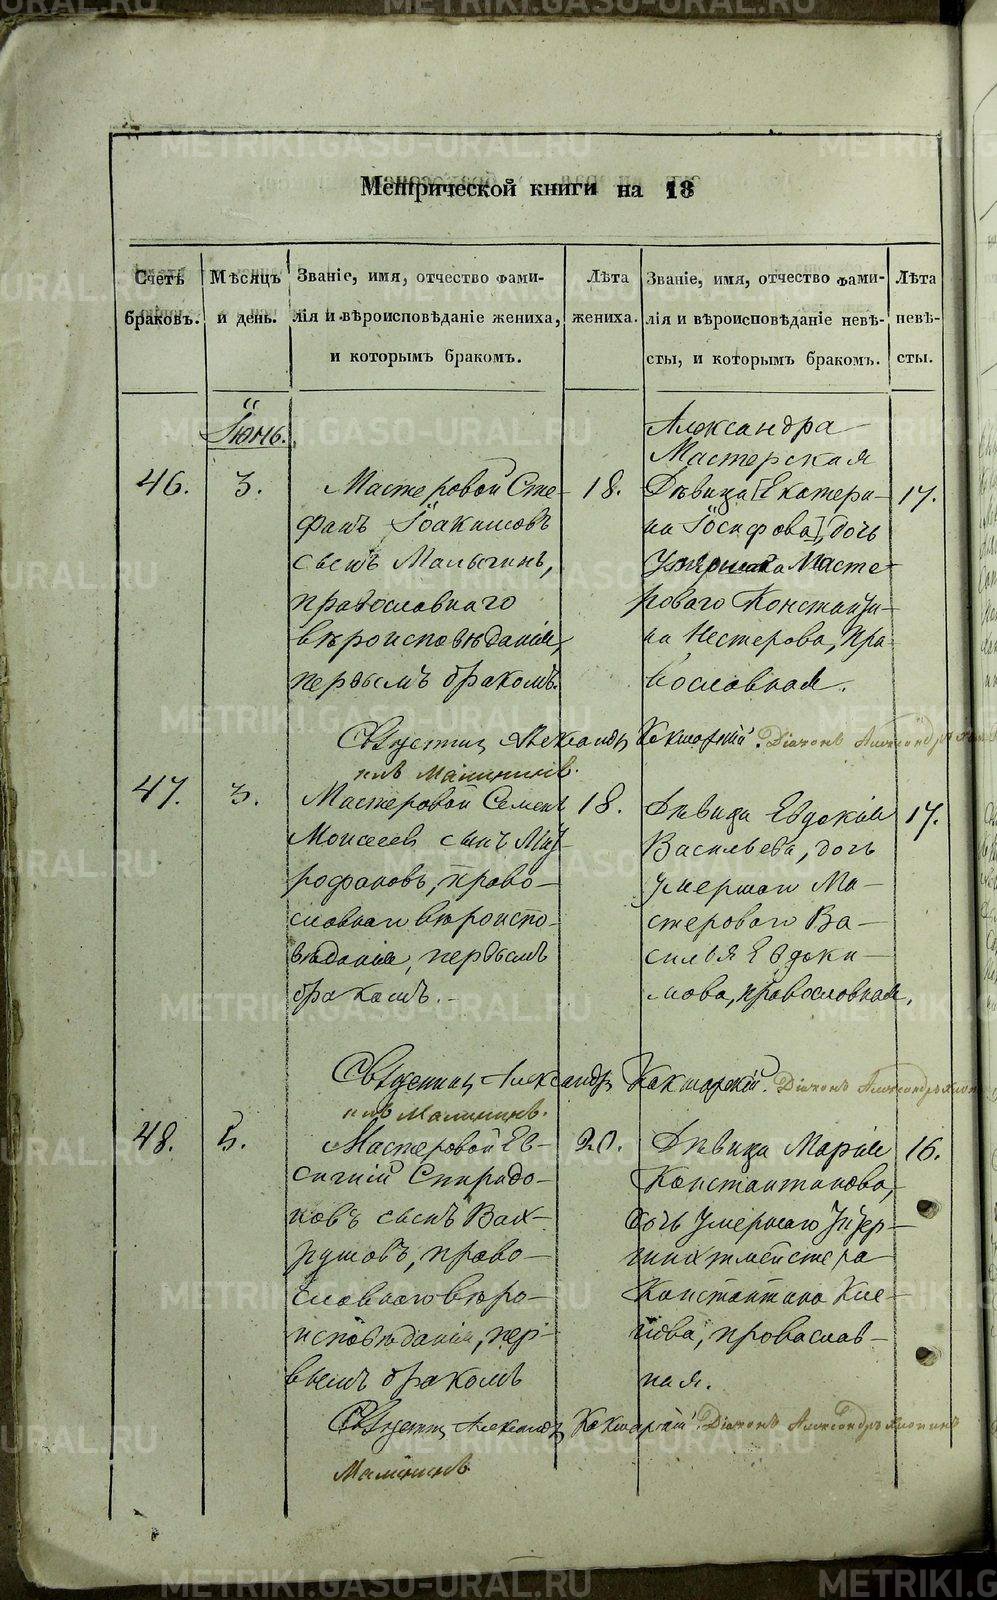 Метрической книги на 18
Счетъ браковъ.
Мѣсяцъ и день.
Званіе, имя, отчество фами-
лія и вѣроисповѣданіе жениха,
и которымъ бракомъ.
Лѣта жениха.
Званіе, имя, отчество фами-
лія и вѣроисповѣданіе невѣ-
сты, и которымъ бракомъ.
Лѣта невѣ-
сты.
Іюнь.
46.
3.
Мастеровой Сте-
фанъ Іоакимовъ
сынъ Малыгинъ,
православнаго
вѣроисповѣданія,
первымъ бракомъ.
18.
Александра
Мастерская
Дѣвица [Екатери-
на Іосифова], дочь
умершаго Масте-
роваго Константи-
на Нестерова, пра-
вославная.
17.
Священникъ Александръ Кокшарскій. Діаконъ Александръ
Малининъ.
47.
3.
Мастеровой Семенъ
Моисеев сынъ Мит-
рофановъ, право-
славнаго вѣроиспо-
вѣданія, первымъ
бракомъ.
18.
Дѣвица Евдокія
Васильева, дочь
умершаго Ма-
стероваго Ва-
силья Евдоки-
мова, православная.
17.
Священникъ Александръ Кокшарскій. Діаконъ Александръ
Малининъ.
48.
5.
Мастеровой Ев-
сигній Спиридо-
новъ сынъ Вах-
рушовъ, право-
славнаго вѣро-
исповѣданія, пер-
вымъ бракомъ
20.
Дѣвица Марія
Константинова,
дочь Умершаго Унтер-
шихтмейстера
Константина Кле-
пова, православ-
ная.
16.
Священникъ Александръ Кокшарскій. Діаконъ Александръ
Малининъ
METRIKI.GASO-URAL.RU